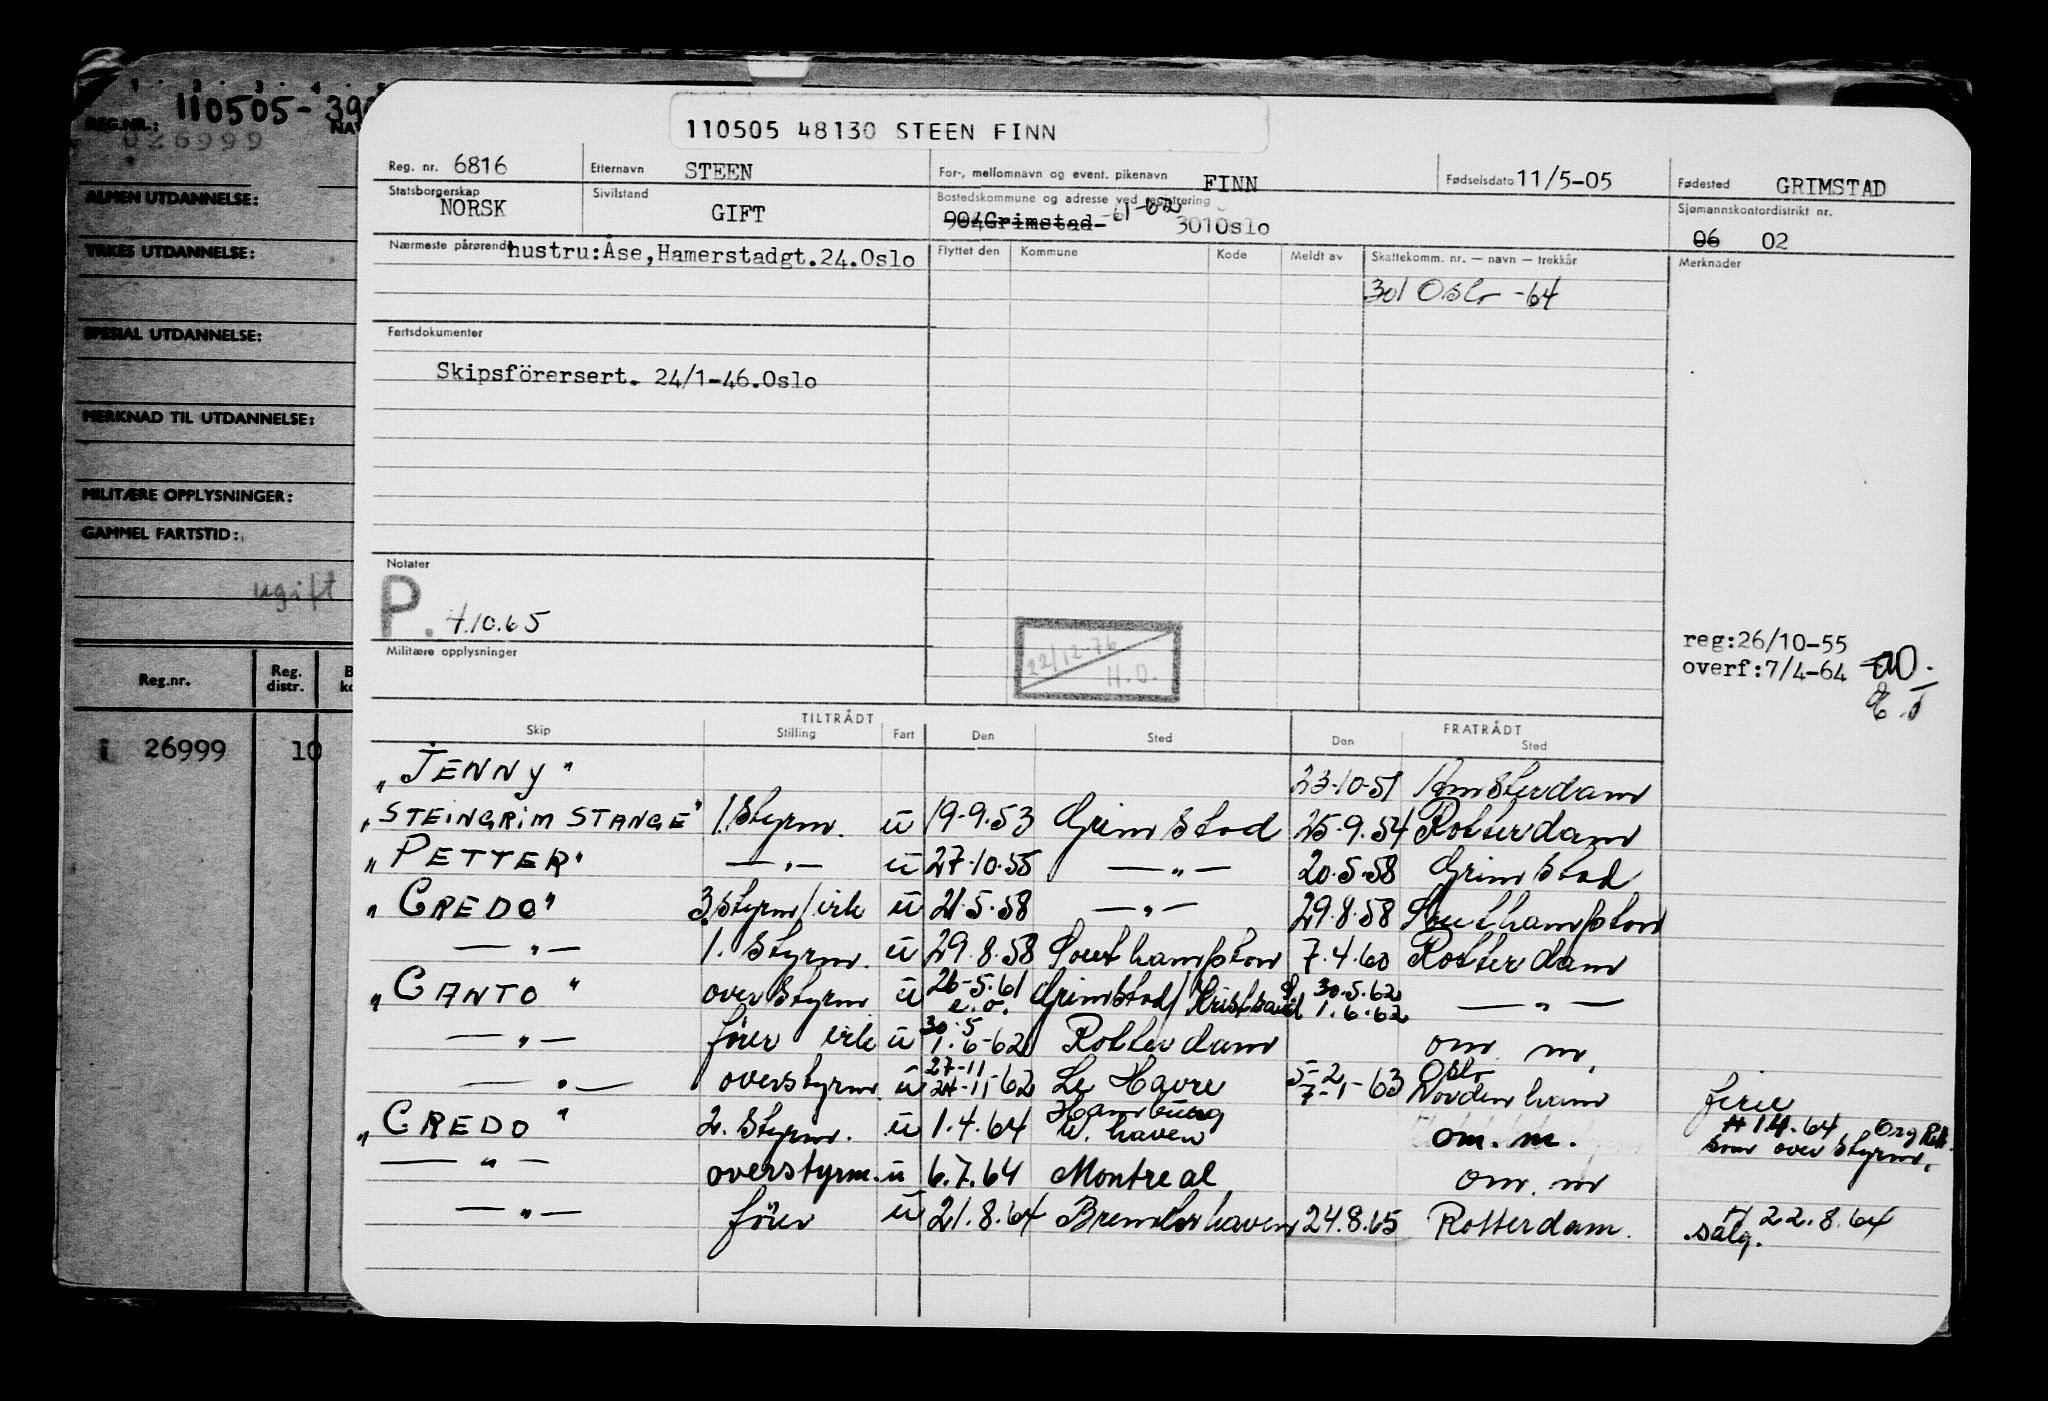 1 · 2 · 3 · 4 · 5
REG.NR.: 110505-39
026999
ALMEN UTDANNELSE:
YRKES UTDANNELSE:
SPESIAL UTDANNELSE:
MERKNAD TIL UTDANNELSE:
MILITÆRE OPPLYSNINGER:
GAMMEL FARTSTID:
ugift
Reg.nr. Reg. distr.
26999 10
110505 48130 STEEN FINN
Reg. nr. 6816 Etternavn STEEN For-, mellomnavn og event. pikenavn FINN Fødselsdato 11/5-05 Fødested GRIMSTAD
Statsborgerskap NORSK Sivilstand GIFT Bostedskommune og adresse ved registrering 904Grimstad -61-62 301Oslo Sjømannskontordistrikt nr. 06 02
Nærmeste pårørende hustru:Åse,Hamerstadgt.24.Oslo Flyttet den Kommune Kode Meldt av Skattekomm. nr. — navn — trekkår Merknader
301 Oslo -64
Fartsdokumenter
Skipsförersert. 24/1-46.Oslo
Notater
P. 4.10.65
22/12-76 H.O.
Militære opplysninger
reg:26/10-55
overf:7/4-64
TILTRÅDT FRATRÅDT
Skip Stilling Fart Den Sted Den Sted
"JENNY" 23-10-51 Amsterdam
"STEINGRIM STANGE" 1.Styrm. u 19-9.53 Grimstad 25.9.54 Rotterdam
"PETTER" —"— u 27-10-55 —"— 20.5.58 Grimstad
"CREDO" 3.Styrm/virk u 21.5.58 —"— 29.8.58 Southampton
—"— 1. Styrm. u 29.8.58 Southampton 7.4.60 Rotterdam
"CANTO" overstyrm u 26-5.61 e.o. Grimstad/Kristsand 30.5.62 1.6.62 —"—
—"— fører virk u 30.5 1.6-62 Rotterdam om. m.
—"— overstyrm. u 27-11 24-11-62 Le Havre 5-2 7-1-63 Oslo Nordenham ferie
"CREDO" 2. Styrm. u 1.4.64 Hamburg W.haven om. m. 1.4.64 som overstyrm.
—"— overstyrm. u 6.7.64 Montreal om. m
—"— fører u 21.8.64 Bremerhaven 24.8.65 Rotterdam. 22.8.64
salg.